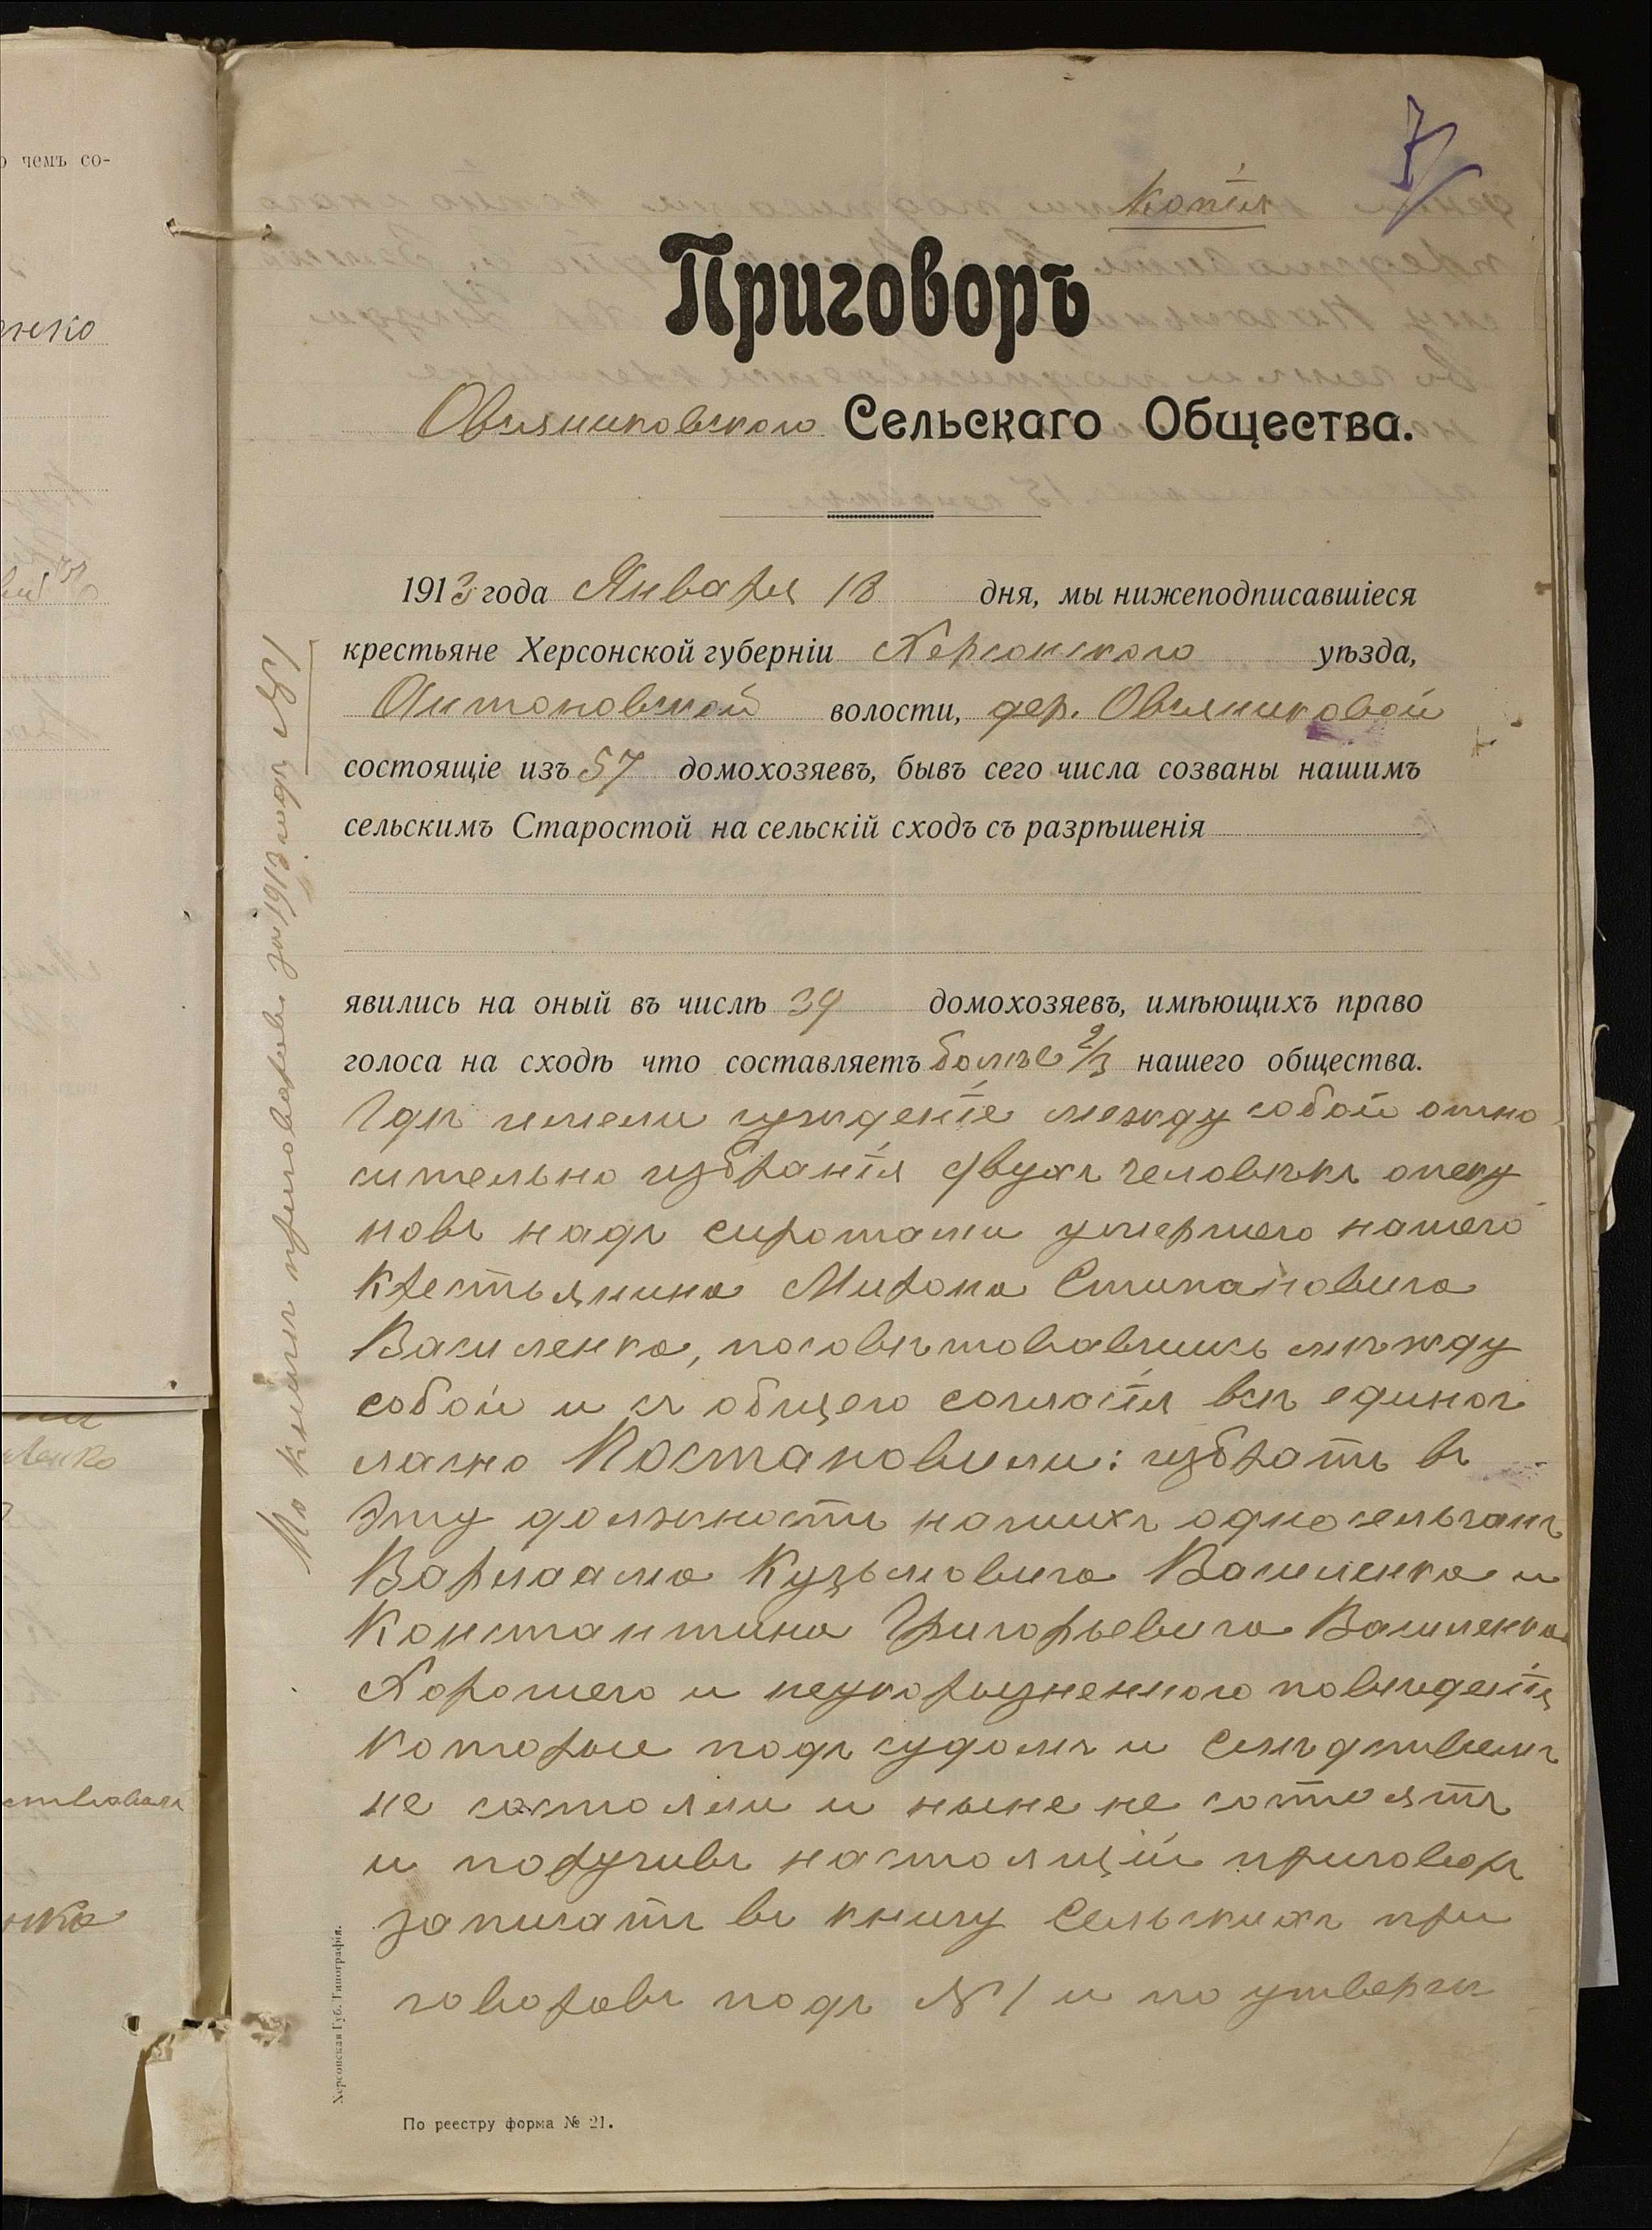 о чемъ со-
7
Копія
Приговоръ
Овсяниковскаго Сельскаго Общества.
1913 года Января 18 дня, мы нижеподписавшіеся
крестьяне Херсонской губерніи Херсонскаго уѣзда,
Антоновской волости, дер. Овсяниковой
состоящіе изъ 57 домохозяевъ, бывъ сего числа созваны нашимъ
сельскимъ Старостой на сельскій сходъ съ разрѣшенія
явились на оный въ числѣ 39 домохозяевъ, имѣющихъ право
голоса на сходѣ что составляетъ болѣе 2/3 нашего общества.
Гдѣ имели сужденіе между собой отно
сительно избранія двухъ человѣкъ опеку
новъ надъ сиротами умершего нашего
крестьянина Мирона Стипановича
Василенка, посовѣтовавшись между
собой и съ общего согласія всѣ единог
ласно Постановили: избрать въ
Эту должность нашихъ односельчанъ
Варлаама Кузьмовича Василенка и
Константина Григорьевича Василенка
Хорошего и неукоризненного поведенія
которые подъ судомъ и следствіемъ
не состояли и ныне не состоятъ
и поручивъ настоящій приговоръ
записать въ книгу Сельскихъ при
говоровъ подъ № 1 и по утверж
По книгѣ приговоровъ за 1913 годъ № 1
Херсонская Губ. Типографія.
По реестру форма № 21.